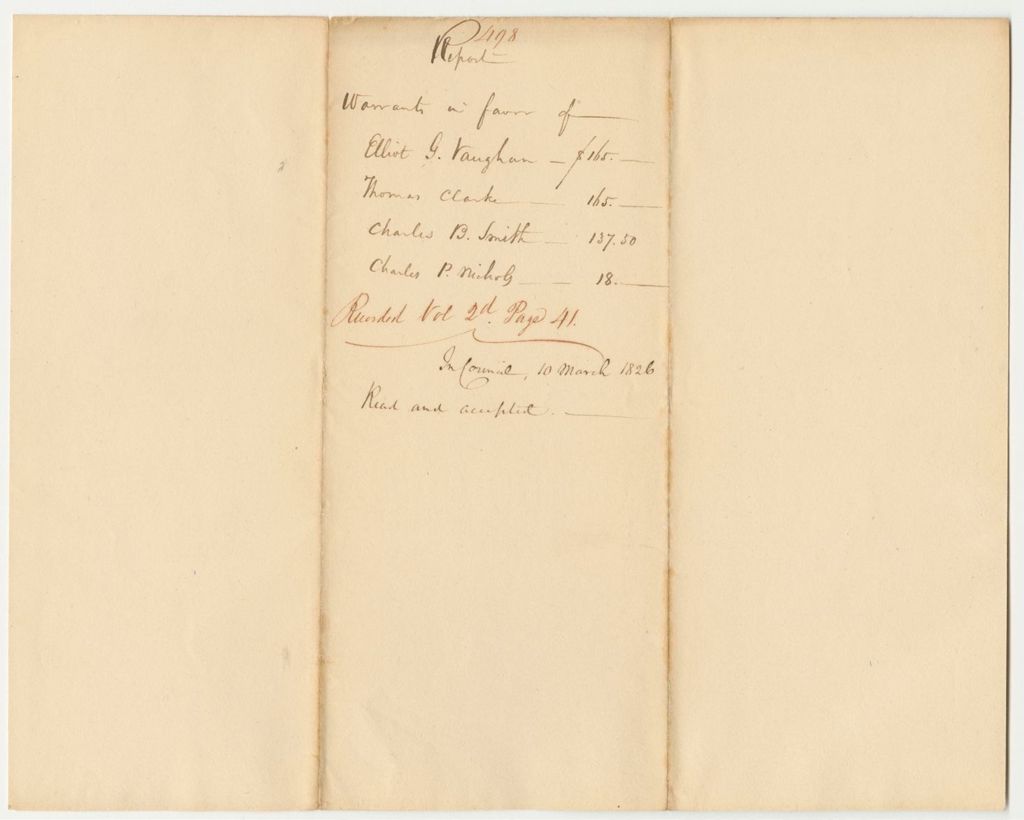 498
Report
Warrants in favor of
Elliot G. Vaughan — $165.—
Thomas Clarke — 165.—
Charles B. Smith — 137.50
Charles P. Nichols — 18.—
Recorded Vol 2d. Page 41.
In Council, 10 March 1826
Read and accepted.—